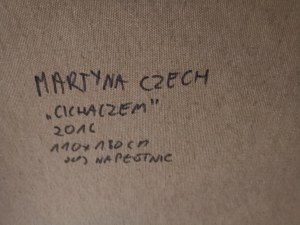 MARTYNA CZECH
„CICHACZEM”
2016
110x180 cm
NA PŁÓTNIE